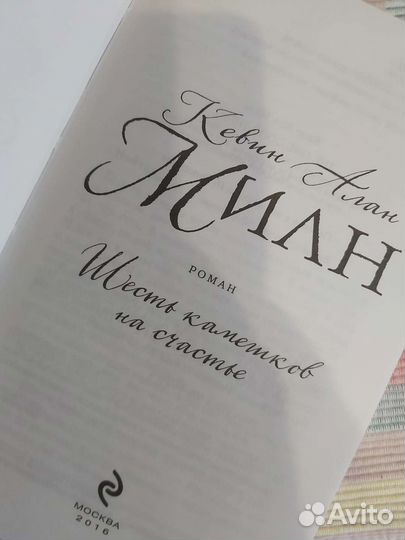 Кевин Алан
Милн
РОМАН
Шесть камешков
на счастье
МОСКВА
2016
Avito